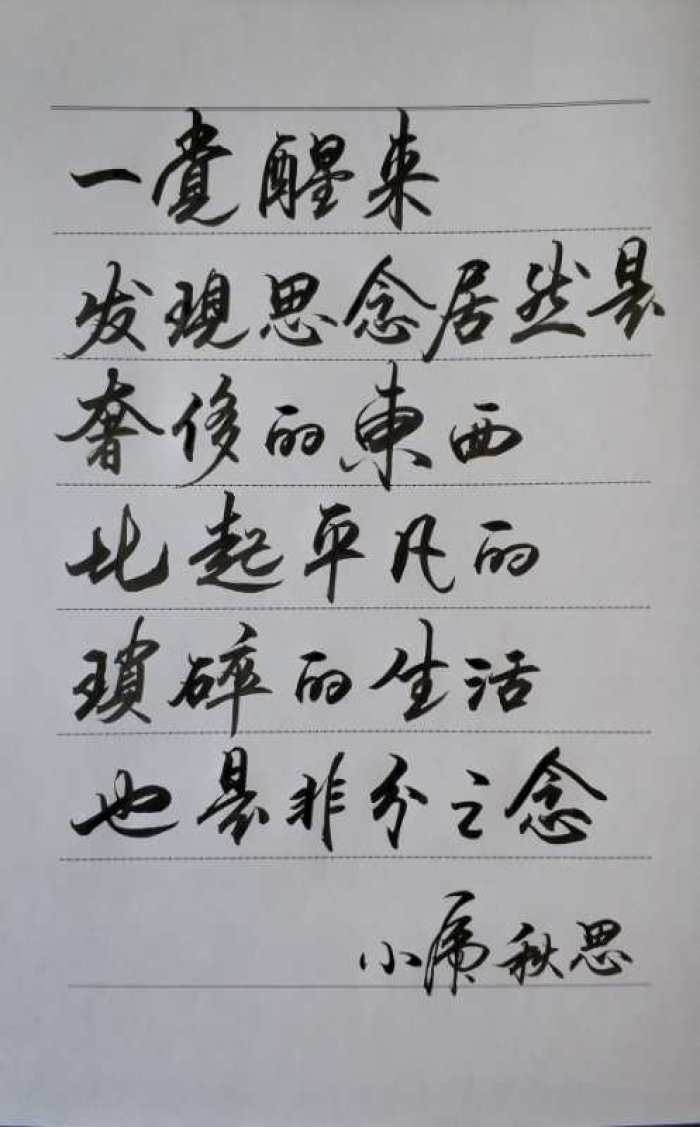 一覚醒来
发現思念居然是
奢侈的東西
比起平凡的
瑣碎的生活
也是非分之念
小 秋思